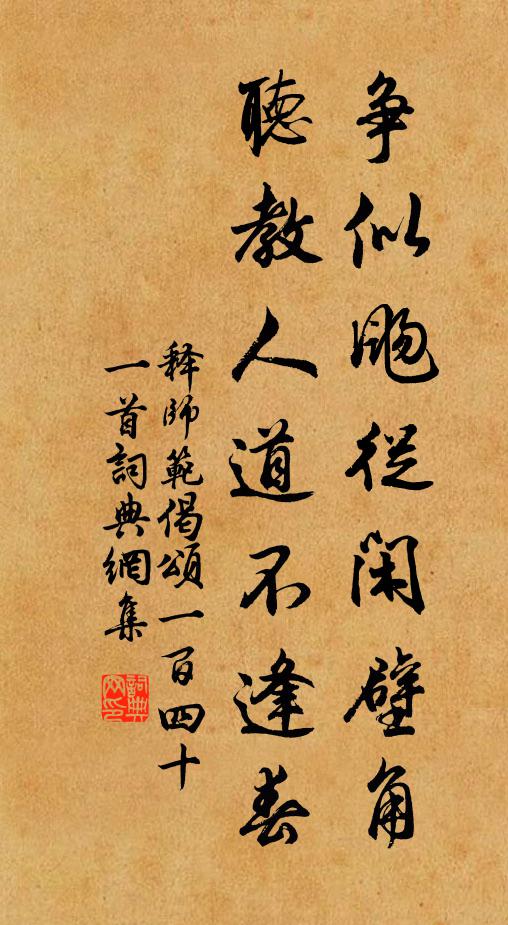 争似飏従閑壁角
聽教人道不逢春
释師範偈頌一百四十
一首詞典網集
詞典網印